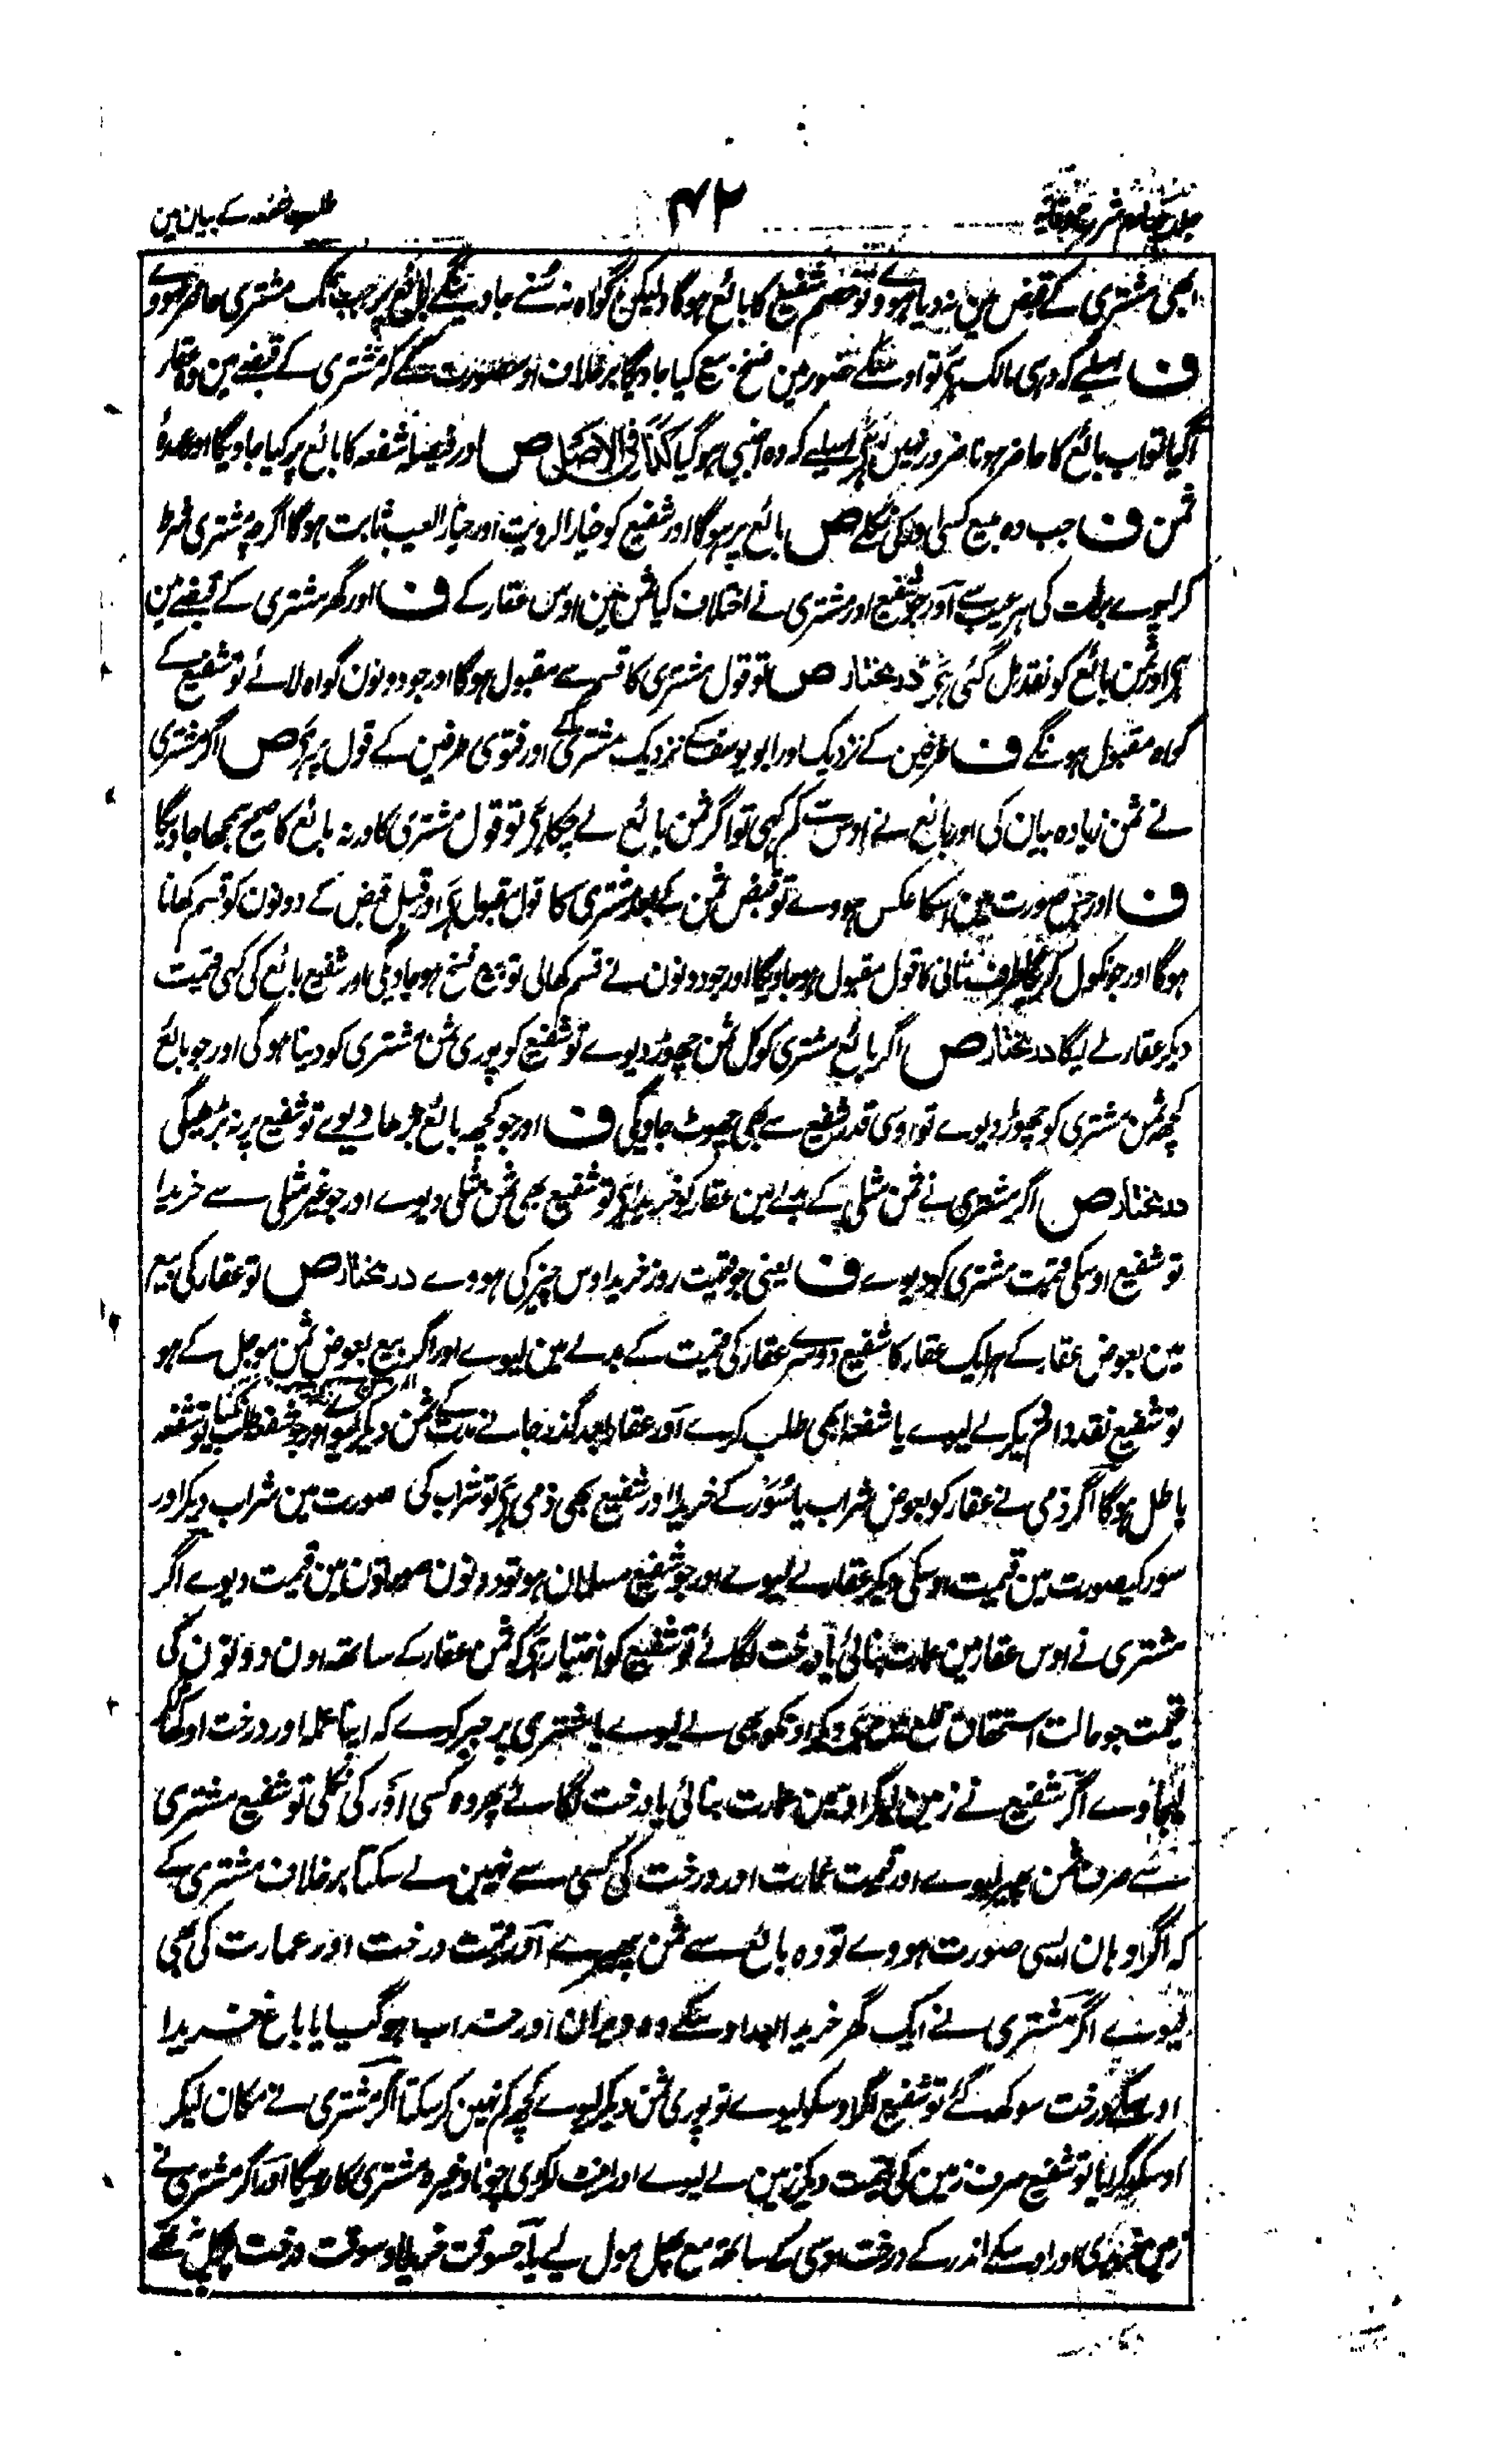 جلد چہارم شرح وقایہ
۴۲
طلب شفعہ کے بیان مین
ابھی مشتری کے قبض مین نہ دیا ہووے تو خصم شفیع کا بائع ہوگا ولیکن گواہ نہ سُنے جاوینگے بائع پر جب تک مشتری حاضر نہووے
ف اسلیے کہ وہی مالک ہی تو اوسکے حضور مین فسخ بیع کیا جاویگا برخلاف اوس صورت کے کہ مشتری کے قبضے مین وہ عقار
آگیا تو اب بائع کا حاضر ہونا ضرور نہین ہی اسلیے کہ وہ اجنبی ہوگیا کذا فی الاصل ص اور فیصلہ شفعہ کا بائع پر کیا جاویگا اور عہدہ
ثمن ف جب وہ مبیع کسی اور کی نکلے ص بائع پر ہوگا اور شفیع کو خیار الرویت اور خیار العیب ثابت ہوگا اگرچہ مشتری شرط
کرلیوے براءت کی ہر عیب سے اور جو شفیع اور مشتری نے اختلاف کیا ثمن مین اوس عقار کے ف اور گھر مشتری کے قبضے مین
ہی اور ثمن بائع کو نقد مل گئی ہی در مختار ص تو قول مشتری کا قسم سے مقبول ہوگا اور جو دونون گواہ لائے تو شفیع کے
گواہ مقبول ہونگے ف طرفین کے نزدیک اور ابو یوسف کے نزدیک مشتری کے اور فتوی طرفین کے قول پر ہی ص اگر مشتری
نے ثمن زیادہ بیان کی اور بائع نے اوس سے کم کہی تو اگر ثمن بائع لے چکا ہی تو قول مشتری کا ورنہ بائع کا صحیح سمجھا جاویگا
ف اور جس صورت مین اسکا عکس ہووے تو قبض ثمن کے بعد مشتری کا قول مقبول ہی اور قبل قبض کے دونون کو قسم کھانا
ہوگا اور جو نکول کریگا طرف ثانی کا قول مقبول ہوجاویگا اور جو دونون نے قسم کھالی تو بیع فسخ ہوجاویگی اور شفیع بائع کی کہی قیمت
دیکر عقار لے لیگا در مختار ص اگر بائع مشتری کو کل ثمن چھوڑ دیوے تو شفیع کو پوری ثمن مشتری کو دینا ہوگی اور جو بائع
کچھ ثمن مشتری کو چھوڑ دیوے تو اوسی قدر شفیع سے بھی چھوٹ جاویگی ف اور جو کچھ بائع بڑھا دیوے تو شفیع پر نہ بڑھیگی
در مختار ص اگر مشتری نے ثمن مثلی کے بدلے مین عقار کو خریدا ہی تو شفیع بھی ثمن مثلی دیوے اور جو غیر مثلی سے خریدا
تو شفیع اوسکی قیمت مشتری کو دیوے ف یعنی جو قیمت روز خرید اوس چیز کی ہووے در مختار ص تو عقار کی بیع
مین بعوض عقار کے ہر ایک عقار کا شفیع دوسرے عقار کی قیمت کے بدلے مین لیوے اور اگر بیع بعوض ثمن موجل کے ہو
تو شفیع نقد دام دیکر لے لیوے یا شفعہ ابھی طلب کرے اور عقار بعد گذر جانے مدت کے ثمن دیکر لیوے اور جو شفعہ طلب نکیا تو شفعہ
باطل ہوگا اگر ذمی نے عقار کو بعوض شراب یا سُوَر کے خریدا اور شفیع بھی ذمی ہی تو شراب کی صورت مین شراب دیکر اور
سور کیصورت مین قیمت اوسکی دیکر عقار لے لیوے اور جو شفیع مسلمان ہو تو دونون صورتون مین قیمت دیوے اگر
مشتری نے اوس عقار مین عمارت بنائی یا درخت لگائے تو شفیع کو اختیار ہی کہ ثمن عقار کے ساتھ اون دونون کی
قیمت جو حالت استحقاق قلع مین ہی دیکر اونکو بھی لے لیوے یا مشتری پر جبر کرے کہ اپنا عملہ اور درخت اوکھاڑ
لیجاوے اگر شفیع نے زمین لیکر اوسمین عمارت بنائی یا درخت لگائے پھر وہ کسی اَور کی نکلی تو شفیع مشتری
سے صرف ثمن پھیر لیوے اور قیمت عمارت اور درخت کی کسی سے نہین لے سکتا برخلاف مشتری کے
کہ اگر اوہان ایسی صورت ہووے تو وہ بائع سے ثمن پھیرے اور قیمت درخت اور عمارت کی بھی
لیوے اگر مشتری نے ایک گھر خریدا بعد اوسکے وہ ویران اور خراب ہوگیا یا باغ خریدا
اوسکے درخت سوکھ گئے تو شفیع اگر اوسکو لیوے تو پوری ثمن دیکر لیوے کچھ کم نہین کرسکتا اگر مشتری نے مکان لیکر
اوسکو گرایا تو شفیع صرف زمین کی قیمت دیکر زمین لے لیوے اور اینٹ لکڑی چونا وغیرہ مشتری کا رہیگا اور اگر مشتری نے
زمین خریدی اور اوسکے اندر کے درخت اوسی کے ساتھ مع پھل مول لیے یا جسوقت خریدا اوسوقت درخت بے پھل تھے